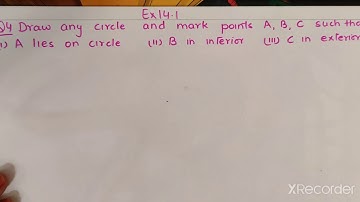 Ex14.1
Q4 Draw any circle and mark points A, B, C such tha
(i) A lies on circle (ii) B in interior (iii) C in exterior
XRecorder